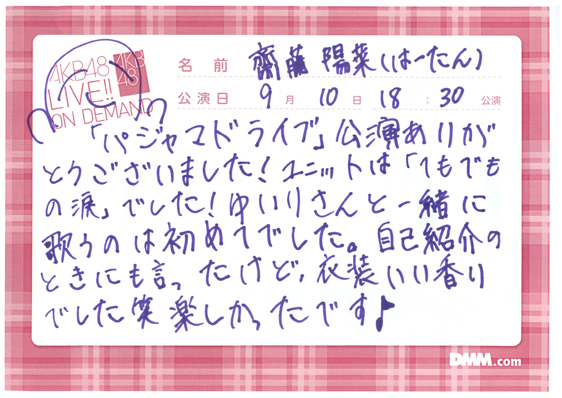 AKB48
LIVE!!
ON DEMAND
AKB
48
名 前 齋藤 陽菜(はーたん)
公演日 9 月 10 日 18 : 30 公演
「パジャマドライブ」公演ありが
とうございました!ユニットは「てもでも
の涙」でした!ゆいりさんと一緒に
歌うのは初めてでした。自己紹介の
ときにも言ったけど、衣装いい香り
でした笑 楽しかったです♪
DMM.com